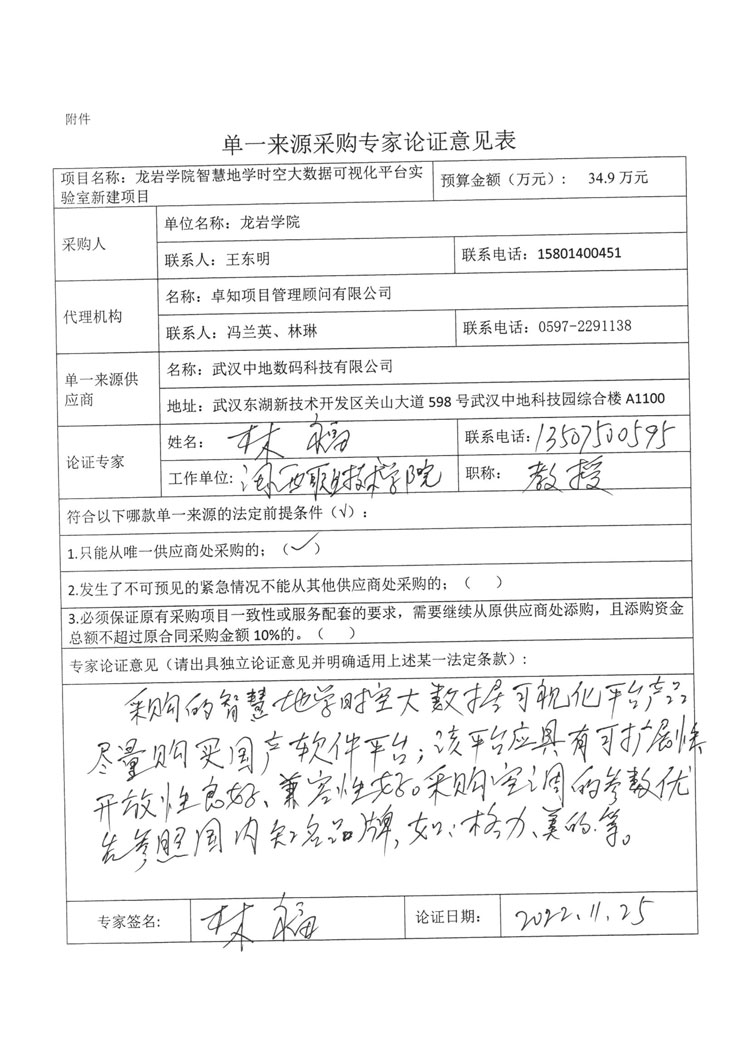 附件
单一来源采购专家论证意见表
项目名称：龙岩学院智慧地学时空大数据可视化平台实
验室新建项目
预算金额（万元）： 34.9 万元
采购人
单位名称：龙岩学院
联系人：王东明
联系电话：15801400451
代理机构
名称：卓知项目管理顾问有限公司
联系人：冯兰英、林琳
联系电话：0597-2291138
单一来源供
应商
名称：武汉中地数码科技有限公司
地址：武汉东湖新技术开发区关山大道 598 号武汉中地科技园综合楼 A1100
论证专家
姓名： 林福
联系电话：13507500595
工作单位：闽西职业技术学院
职称： 教授
符合以下哪款单一来源的法定前提条件（√）：
1.只能从唯一供应商处采购的；（✓）
2.发生了不可预见的紧急情况不能从其他供应商处采购的；（ ）
3.必须保证原有采购项目一致性或服务配套的要求，需要继续从原供应商处添购，且添购资金
总额不超过原合同采购金额 10%的。（ ）
专家论证意见（请出具独立论证意见并明确适用上述某一法定条款）：
采购的智慧地学时空大数据可视化平台产品
尽量购买国产软件平台；该平台应具有可扩展性
开放性良好、兼容性好。采购空调的参数优
先参照国内知名品牌，如：格力、美的等。
专家签名： 林福
论证日期： 2022.11.25